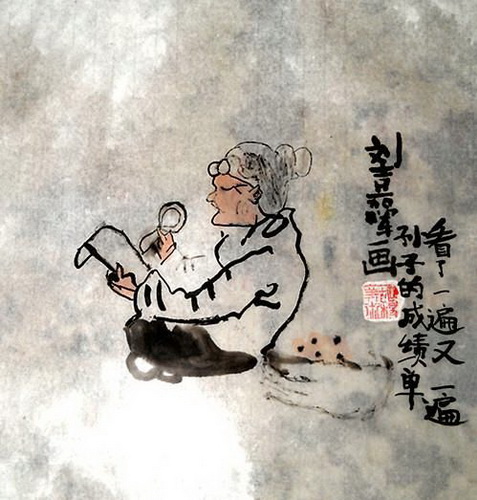 看了一遍又一遍
孙子的成绩单
刘嘉辉画